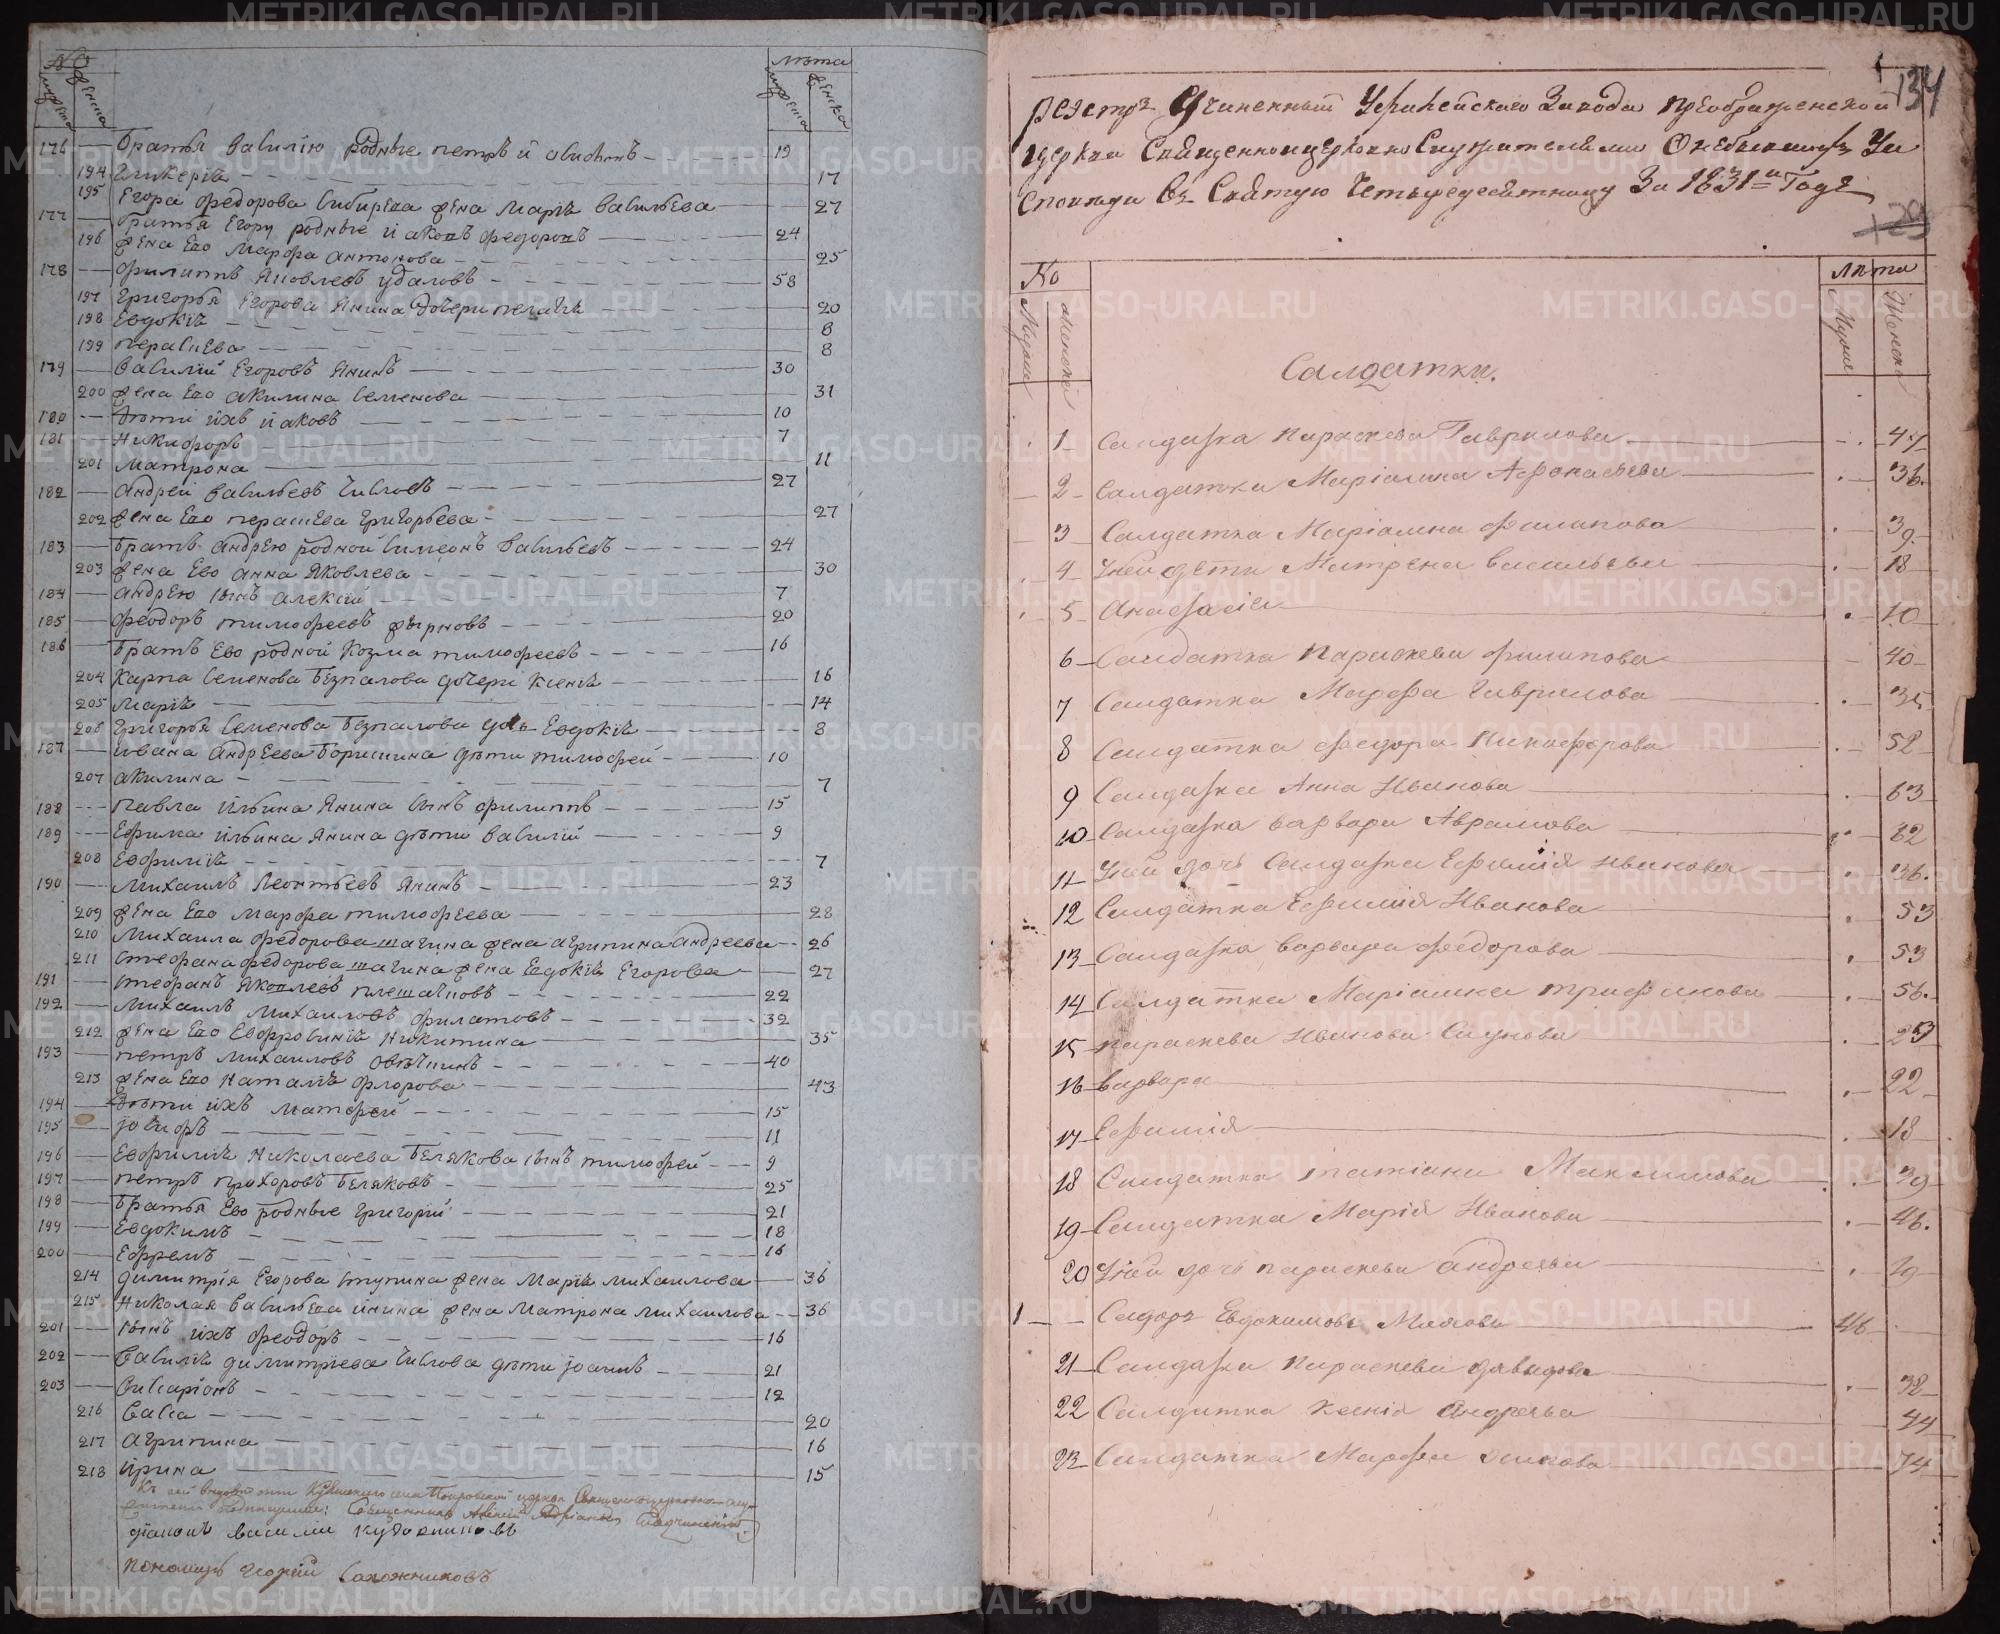 № лѣта
мужска женска мужска женска
176 Братья василію родные петръ и 19
194 Гликерія 17
195 Егора Федорова Сибирева жена Марія васильева 27
177 братья Егору родные Іаковъ Федоровъ 24
196 жена Ево Марфа антонова 25
178 филиппъ Яковлевъ Удаловъ 58
197 Григорья Егорова Янина дочери пелагія 20
198 Евдокія 8
199 параскева 8
179 василій Егоровъ Янинъ 30
200 жена Ево акилина семенова 31
180 дѣти ихъ Іаковъ 10
181 Никифоръ 7
201 матрона 11
182 андрей васильевъ 27
202 жена Ево параскева григорьева 27
183 братъ андрею родной симеонъ васильевъ 24
203 жена Ево анна Яковлева 30
184 андрею сынъ алексій 7
185 феодоръ тимофеевъ 20
186 братъ Ево родной козма тимофеевъ 16
204 карпа семенова безпалова дочери ксенія 16
205 марія 14
206 григорья семенова безпалова дочь Евдокія 8
187 ивана андреева борисина дѣти тимофей 10
207 акилина 7
188 павла ильина Янина сынъ филиппъ 15
189 Ефима ильина Янина дѣти василій 9
208 Евфимія 7
190 михаилъ леонтьевъ Янинъ 23
209 жена Ево марфа тимофеева 28
210 михаила федорова шагина жена агрипина андреева 26
211 стефана федорова шагина жена Евдокія Егорова 27
191 стефанъ Яковлевъ 22
192 михаилъ михаиловъ филатовъ 32
212 жена Ево Евфросинія никитина 35
193 петръ михаиловъ овѣчкинъ 40
213 жена Ево наталія флорова 43
194 дѣти ихъ матфей 15
195 11
196 Евфимія николаева белякова сынъ тимофей 9
197 петръ прохоровъ беляковъ 25
198 братья Ево родные григорій 21
199 Евдокимъ 18
200 Ефремъ 16
214 димитрія Егорова ступина жена марія михаилова 36
215 николая васильева инина жена матрона михаилова 36
201 сынъ ихъ феодоръ 16
202 василія димитріева дѣти іоаннъ 21
203 виссаріонъ 12
216 васса 20
217 агрипина 16
218 ирина 15
діаконъ василий
пономарь георгій сапожниковъ
134
Реэстръ Учиненный Уфалейскаго Завода преображенской
церкви Священноцерковнослужителями О небывшихъ У и
споведи Въ Святую Четыредесятницу За 1831й Годъ
129
№ лѣта
Мужска Женска Мужска Женска
Салдатки.
1 Салдатка параскева Гаврилова 47
2 Салдатка Маріамна Афонасьева 36.
3 Салдатка Маріамна филипова 39.
4 У ней дети Матрена васильева 18
5 Анастасіа 10
6 Салдатка параскева филипова 40
7 Салдатка Марфа гаврилова 35
8 Салдатка федора Никифорова 52
9 Салдатка Анна Иванова 63
10 Салдатка варвара Аврамова 82
11 У ней дочь Салдатка Ефимія Иванова 36.
12 Салдатка Ефимія Иванова 53
13 Салдатка варвара федорова 53
14 Салдатка Маріамна трифанова 56.
15 параскева Иванова 23
16 варвара 22
17 Ефимія 18
18 Салдатка татіана Максимова 39
19 Салдатка Марія Иванова 46.
20 У ней дочь параскева андреева 19
1 Сидоръ Евдокимовъ 46
21 Салдатка параскева давыдова 38
22 Салдатка Ксенія андреева 44
23 Салдатка Марфа 74
METRIKI.GASO-URAL.RU